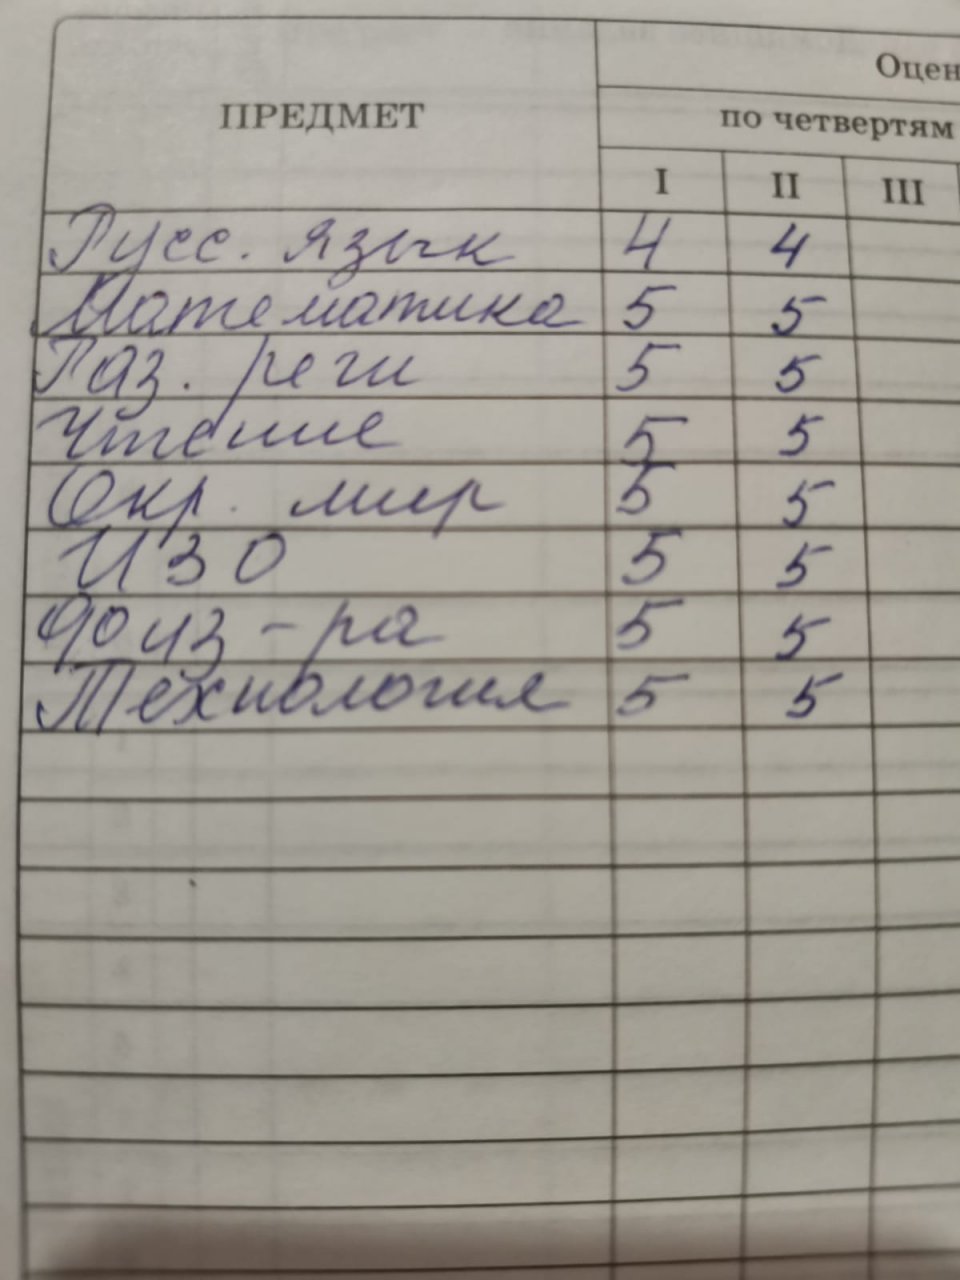 ПРЕДМЕТ
Оцен
по четвертям
I II III
Русс. язык 4 4
Математика 5 5
Раз. речи 5 5
Чтение 5 5
Окр. мир 5 5
ИЗО 5 5
Физ-ра 5 5
Технология 5 5